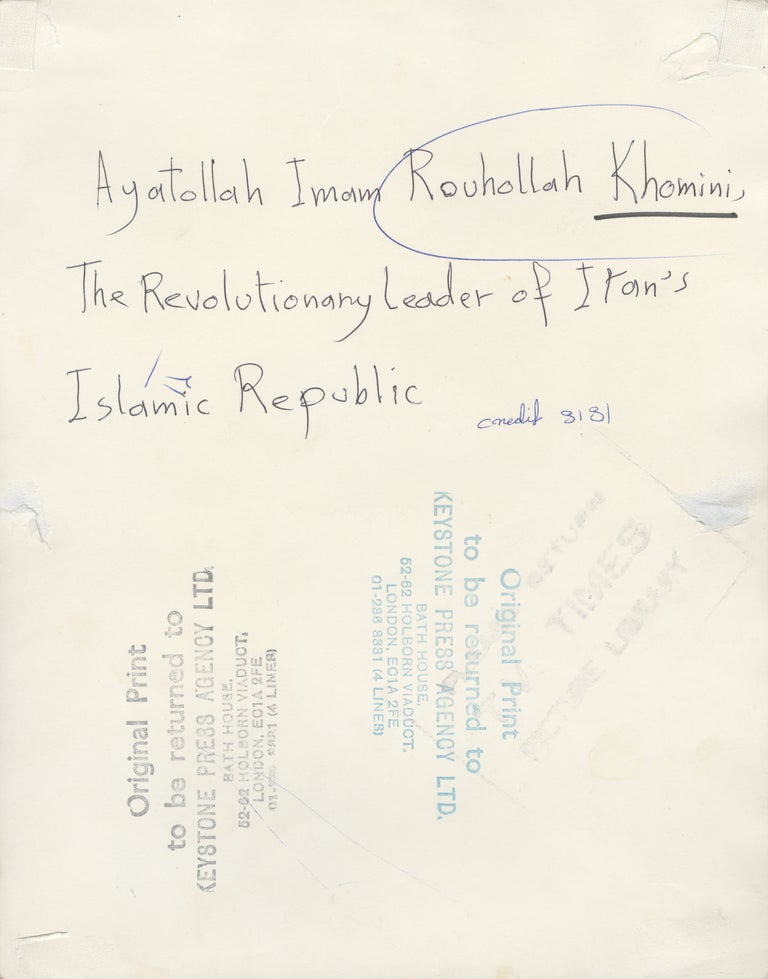 Ayatollah Imam Rouhollah Khomini,
The Revolutionary Leader of Iran's
Islamic Republic
credit 3131
Original Print
to be returned to
KEYSTONE PRESS AGENCY LTD.
BATH HOUSE,
52-62 HOLBORN VIADUCT,
LONDON, EC1A 2FE
(4 LINES)
Original Print
to be returned to
KEYSTONE PRESS AGENCY LTD.
BATH HOUSE,
52-62 HOLBORN VIADUCT.
LONDON, EC1A 2FE
01-236 3331 (4 LINES)
RETURN
TIMES
PICTURE LIBRARY